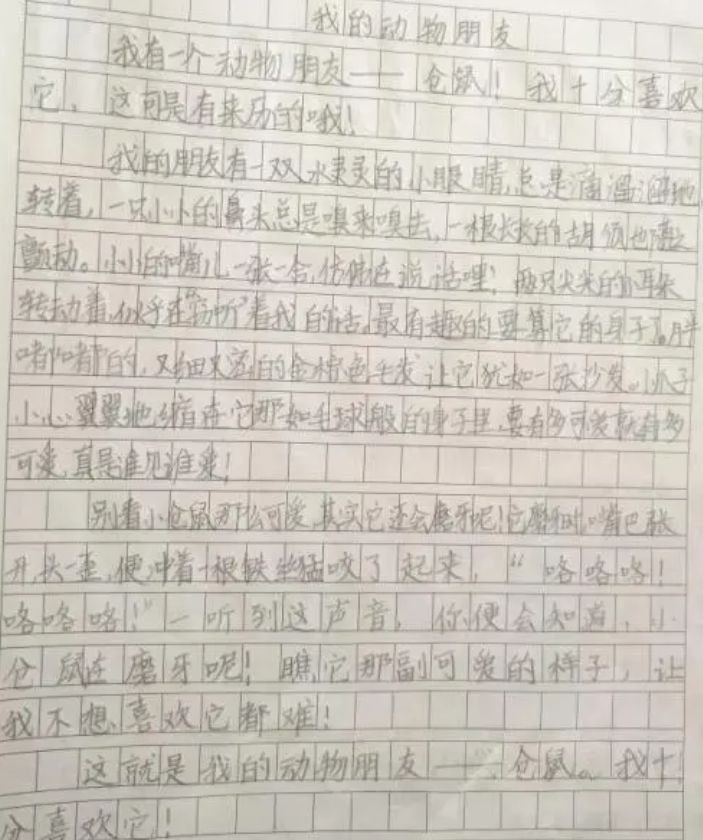 我的动物朋友
我有一个动物朋友——仓鼠！我十分喜欢
它，这可是有来历的哦！
我的朋友有一双水灵灵的小眼睛，总是滴溜溜地
转着，一只小小的鼻头总是嗅来嗅去，一根长长的胡须也随之
颤动。小小的嘴儿一张一合，仿佛在说话哩；两只尖尖的耳朵
转动着，似乎在“窃听”着我的话。最有趣的要算它的身子了。胖
嘟嘟的，又细又密的金棕色毛发，让它犹如一张沙发。小爪子
小心翼翼地缩在它那如毛球般的身子里，要有多可爱就有多
可爱，真是谁见谁爱！
别看小仓鼠那么可爱，其实它还会磨牙呢！它磨牙时，嘴巴张
开，头一歪，便冲着一根铁丝猛咬了起来，“咯咯咯！
咯咯咯！”一听到这声音，你便会知道，小
仓鼠在磨牙呢！瞧它那副可爱的样子，让
我不想喜欢它都难！
这就是我的动物朋友——仓鼠。我十
分喜欢它！